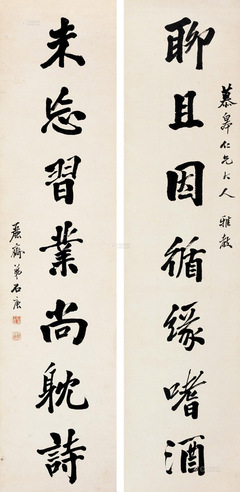 慕皋仁兄大人 雅教
聊且因循緣嗜酒
未忘習業尚躭詩
麗齋弟石庚